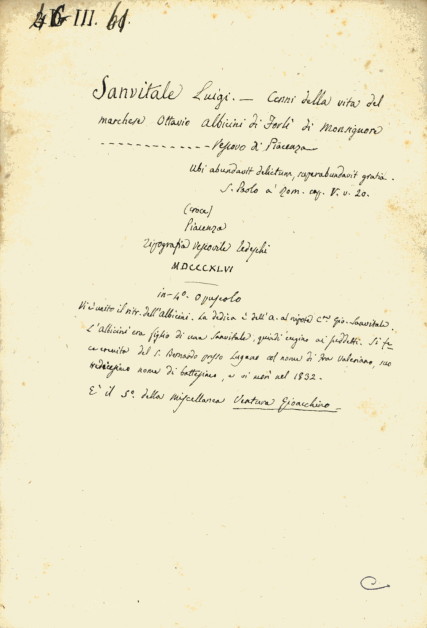 III. 61.
Sanvitale Luigi. — Cenni della vita del
marchese Ottavio Albicini di Forlì di Monsignore
- - - - - - - - - - - - - Vescovo di Piacenza
Ubi abundavit delictum, superabundavit gratia.
S. Paolo a' Rom. cap. V. v. 20.
(croce)
Piacenza
Tipografia Vescovile Tedeschi
MDCCCXLVI
in-4º. Opuscolo
Vi è unito il ritr. dell'Albicini. La dedica è dell'A. al nipote Gio. Sanvitale.
L'Albicini era figlio di una Sanvitale, quindi cugino ai predetti. Si fe-
ce eremita del S. Bernardo presso Lugano col nome di Valeriano, suo
nome di battesimo, e vi morì nel 1832.
E' il 5º. della miscellanea Ventura Gioacchino
C